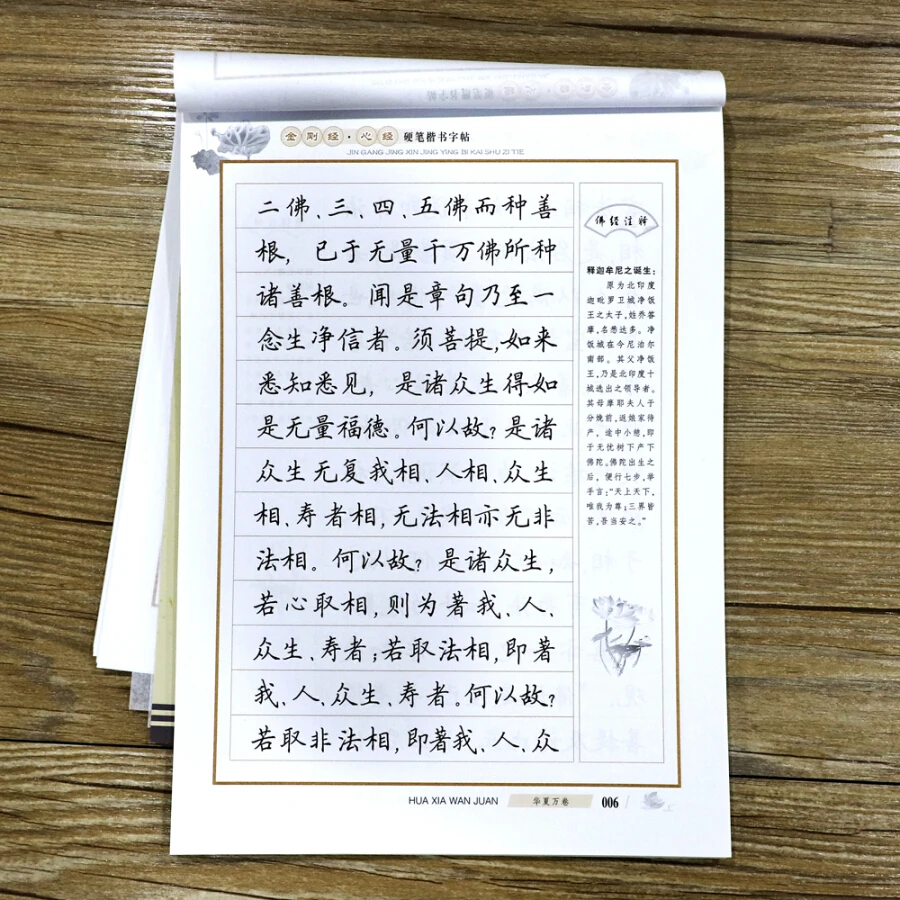 金刚经·心经 硬笔楷书字帖
JIN GANG JING XIN JING YING BI KAI SHU ZI TIE
二佛、三、四、五佛而种善
根，已于无量千万佛所种
诸善根。闻是章句乃至一
念生净信者。须菩提，如来
悉知悉见，是诸众生得如
是无量福德。何以故？是诸
众生无复我相、人相、众生
相、寿者相，无法相亦无非
法相。何以故？是诸众生，
若心取相，则为著我、人、
众生、寿者；若取法相，即著
我、人、众生、寿者。何以故？
若取非法相，即著我、人、众
佛经注释
释迦牟尼之诞生：
原为北印度
迦毗罗卫城净饭
王之太子，姓乔答
摩，名悉达多。净
饭城在今尼泊尔
南部。其父净饭
王，乃是北印度十
城选出之领导者。
其母摩耶夫人于
分娩前，返娘家待
产，途中小憩，即
于无忧树下产下
佛陀。佛陀出生之
后，便行七步，举
手言：“天上天下，
唯我为尊；三界皆
苦，吾当安之。”
HUA XIA WAN JUAN 华夏万卷 006